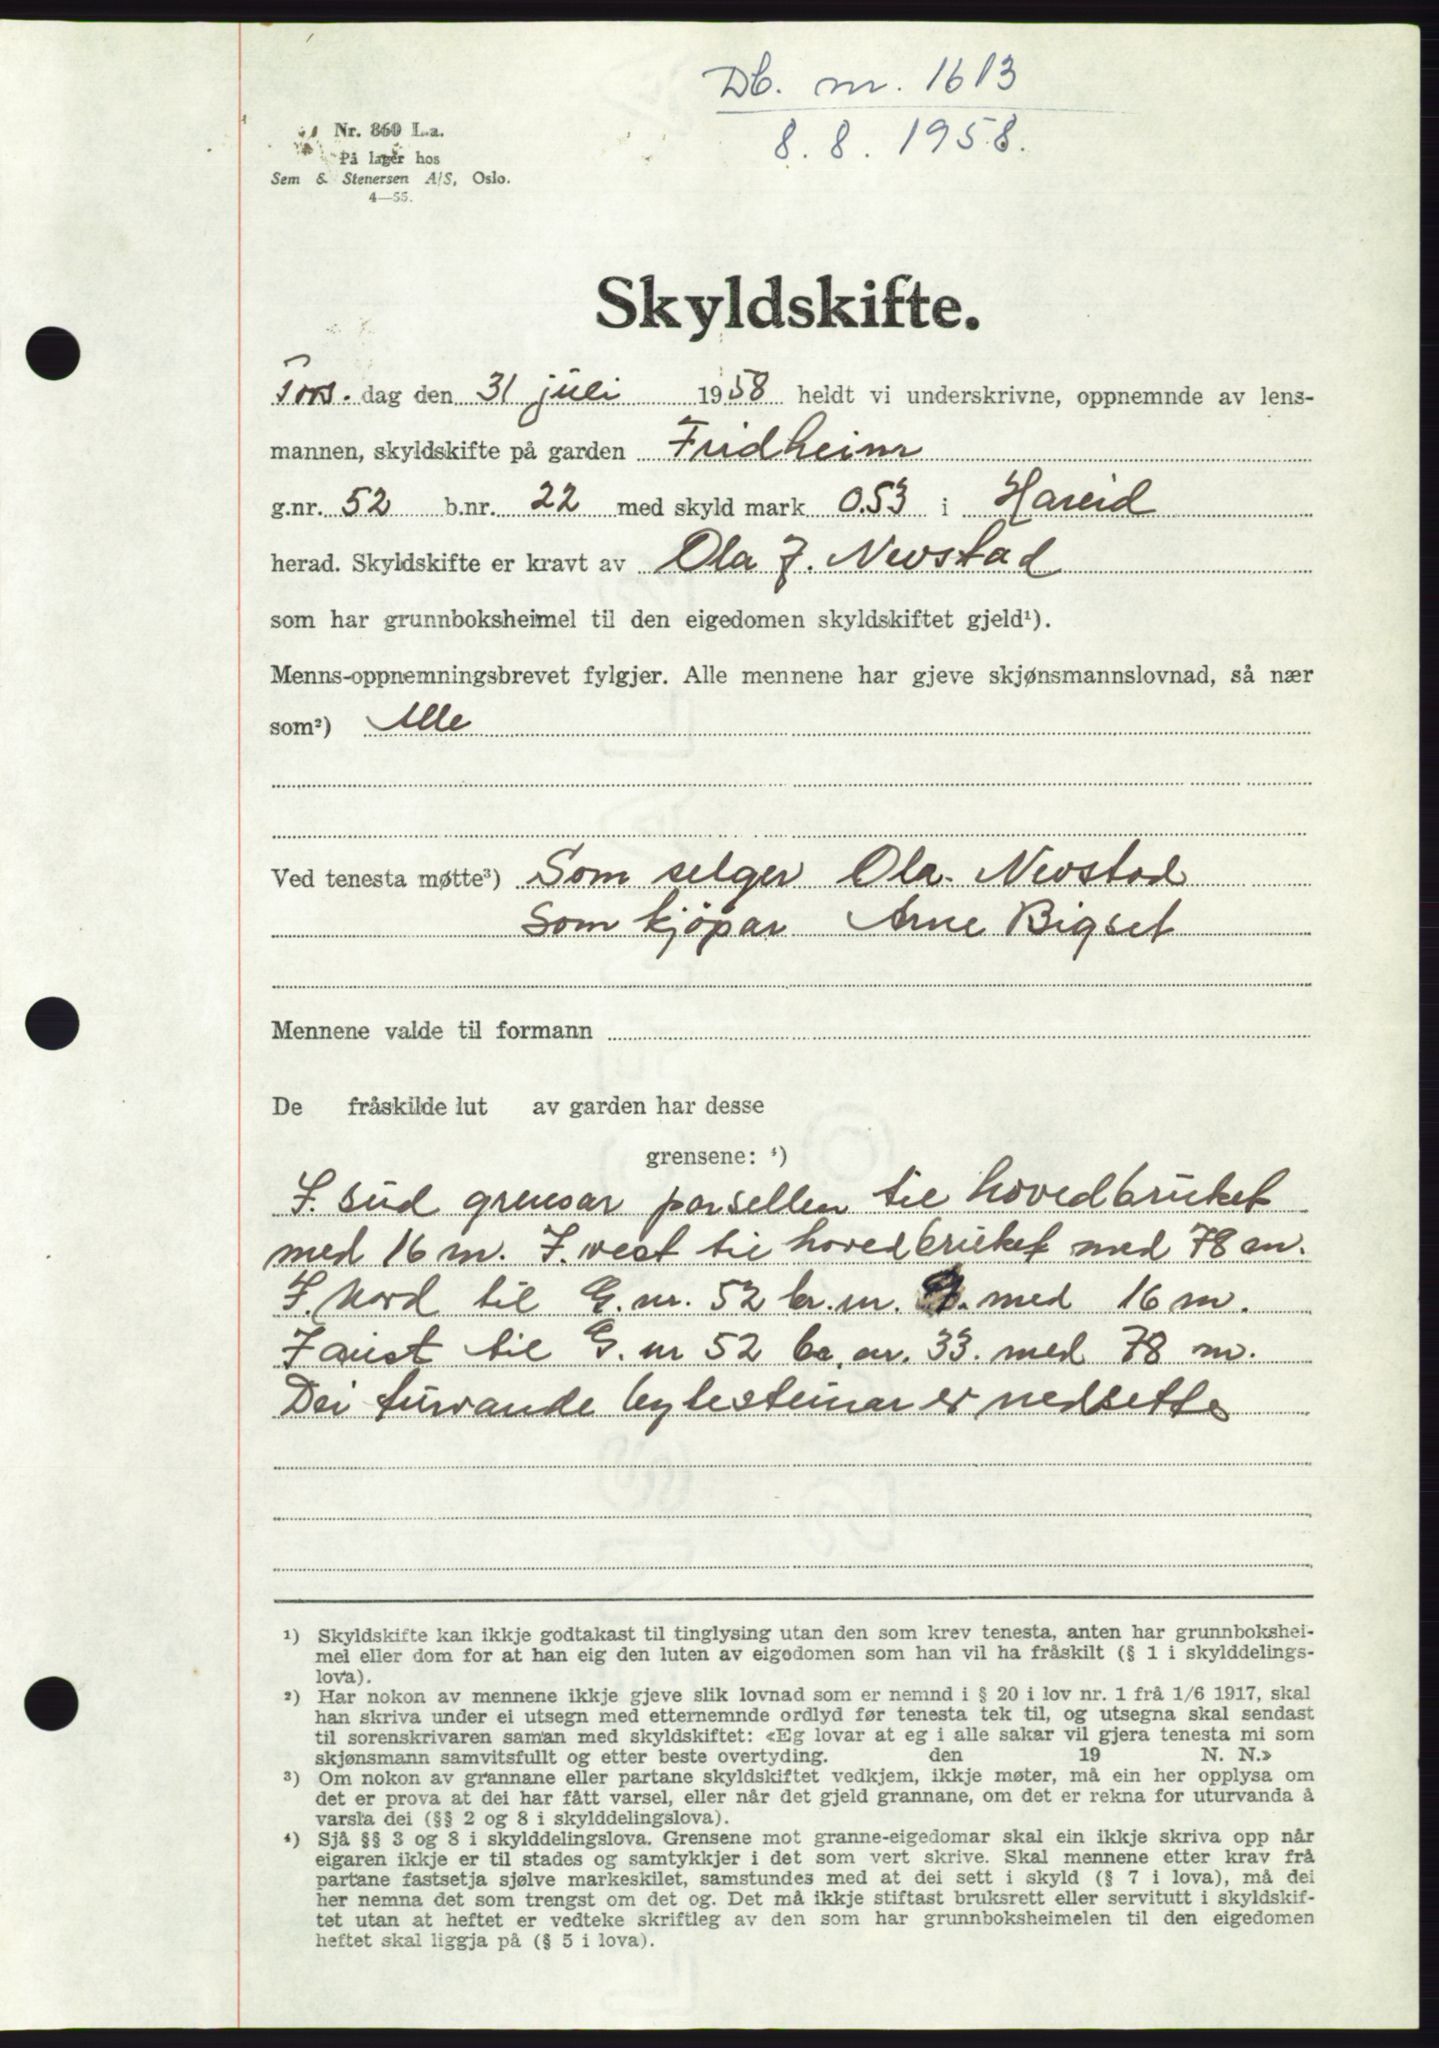 Db. nr. 1613
8.8.1958.
Nr. 860 L.a.
På lager hos
Sem & Stenersen A/S, Oslo.
4—55.
Skyldskifte.
Tors. dag den 31 juli 1958 heldt vi underskrivne, oppnemnde av lens-
mannen, skyldskifte på garden Fridheim
g.nr. 52 b.nr. 22 med skyld mark 0.53 i Hareid
herad. Skyldskifte er kravt av Ola J. Nevstad
som har grunnboksheimel til den eigedomen skyldskiftet gjeld¹).
Menns-oppnemningsbrevet fylgjer. Alle mennene har gjeve skjønsmannslovnad, så nær
som²) Alle
Ved tenesta møtte³) Som selger Ola Nevstad
Som kjöpar Arne Bigset
Mennene valde til formann
De fråskilde lut av garden har desse
grensene: ⁴)
I. süd grensar parsellen til hovedbruket
med 16 m. I. vest til hovedbruket med 78 m.
I. Nord til G. nr. 52 br. nr. med 16 m.
I aust til G. nr 52 br. nr. 33. med 78 m.
Dei turvande bytesteinar er nedsette
¹) Skyldskifte kan ikkje godtakast til tinglysing utan den som krev tenesta, anten har grunnbokshei-
mel eller dom for at han eig den luten av eigedomen som han vil ha fråskilt (§ 1 i skylddelings-
lova).
²) Har nokon av mennene ikkje gjeve slik lovnad som er nemnd i § 20 i lov nr. 1 frå 1/6 1917, skal
han skriva under ei utsegn med etternemnde ordlyd før tenesta tek til, og utsegna skal sendast
til sorenskrivaren saman med skyldskiftet: «Eg lovar at eg i alle sakar vil gjera tenesta mi som
skjønsmann samvitsfullt og etter beste overtyding. den 19 N. N.»
³) Om nokon av grannane eller partane skyldskiftet vedkjem, ikkje møter, må ein her opplysa om
det er prova at dei har fått varsel, eller når det gjeld grannane, om det er rekna for uturvanda å
varsla dei (§§ 2 og 8 i skylddelingslova).
⁴) Sjå §§ 3 og 8 i skylddelingslova. Grensene mot granne-eigedomar skal ein ikkje skriva opp når
eigaren ikkje er til stades og samtykkjer i det som vert skrive. Skal mennene etter krav frå
partane fastsetja sjølve markeskilet, samstundes med at dei sett i skyld (§ 7 i lova), må dei
her nemna det som trengst om det og. Det må ikkje stiftast bruksrett eller servitutt i skyldskif-
tet utan at heftet er vedteke skriftleg av den som har grunnboksheimelen til den eigedomen
heftet skal liggja på (§ 5 i lova).